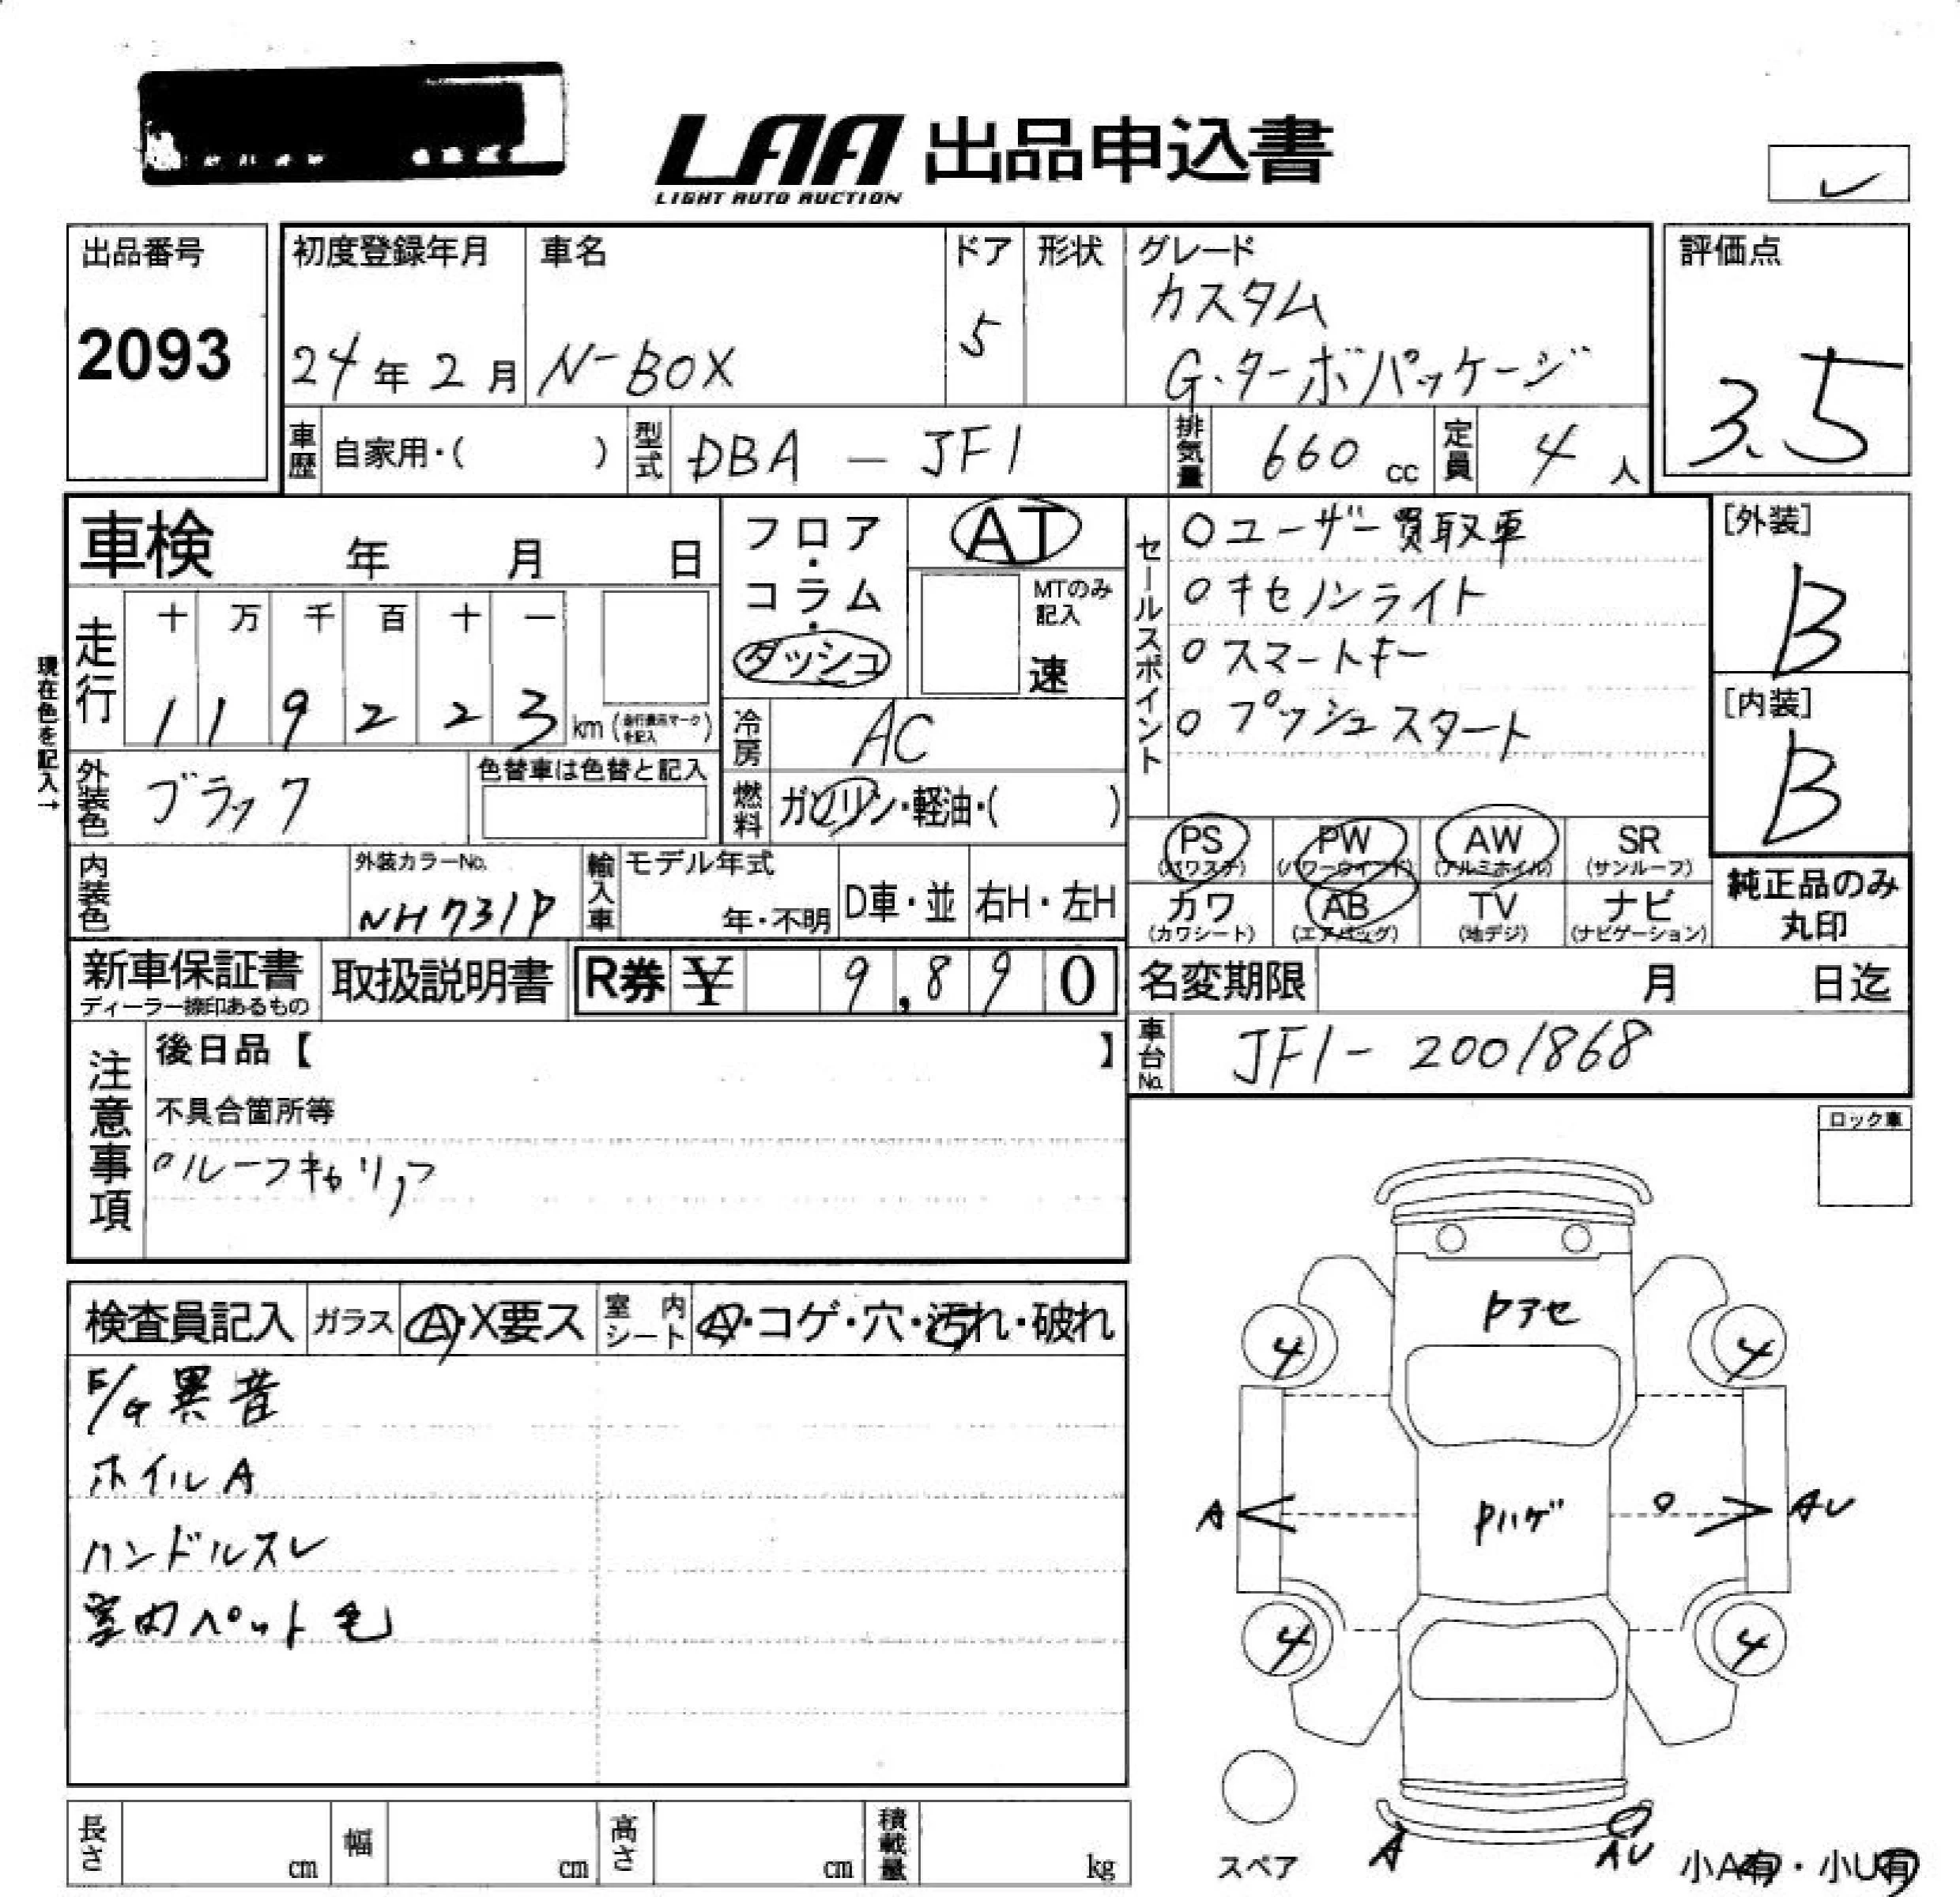 LAA 出品申込書
LIGHT AUTO AUCTION
出品番号
2093
初度登録年月
24年2月
車名
N-BOX
ドア
5
形状
グレード
カスタム
G・ターボパッケージ
評価点
3.5
車歴 自家用・( )
型式 DBA - JF1
排気量 660 cc
定員 4 人
車検 年 月 日
フロア・コラム・ダッシュ
AT
MTのみ記入
速
セールスポイント
○ユーザー買取車
○キセノンライト
○スマートキー
○プッシュスタート
[外装]
B
[内装]
B
現在色を記入→
走行
十 万 千 百 十 一
1 1 9 2 2 3 km (走行表示マークを記入)
冷房 AC
外装色 ブラック
色替車は色替と記入
燃料 ガソリン・軽油・( )
PS (パワステ)
PW (パワーウインド)
AW (アルミホイル)
SR (サンルーフ)
カワ (カワシート)
AB (エアバッグ)
TV (地デジ)
ナビ (ナビゲーション)
純正品のみ丸印
内装色
外装カラーNo.
NH731P
輸入車
モデル年式
年・不明
D車・並
右H・左H
新車保証書
ディーラー捺印あるもの
取扱説明書
R券 ¥ 9,890
名変期限 月 日迄
車台No. JF1-2001868
注意事項
後日品【 】
不具合箇所等
○ルーフキャリア
ロック車
検査員記入
ガラス A・X要ス
室内シート A・コゲ・穴・汚れ・破れ
E/G異音
ホイルA
ハンドルスレ
室内ペット毛
Pアセ
4
4
A
Pハゲ
AU
4
4
スペア
A
AU
小A有・小U有
長さ cm
幅 cm
高さ cm
積載量 kg